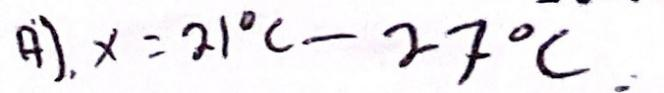 A). x = 21°C - 27°C.